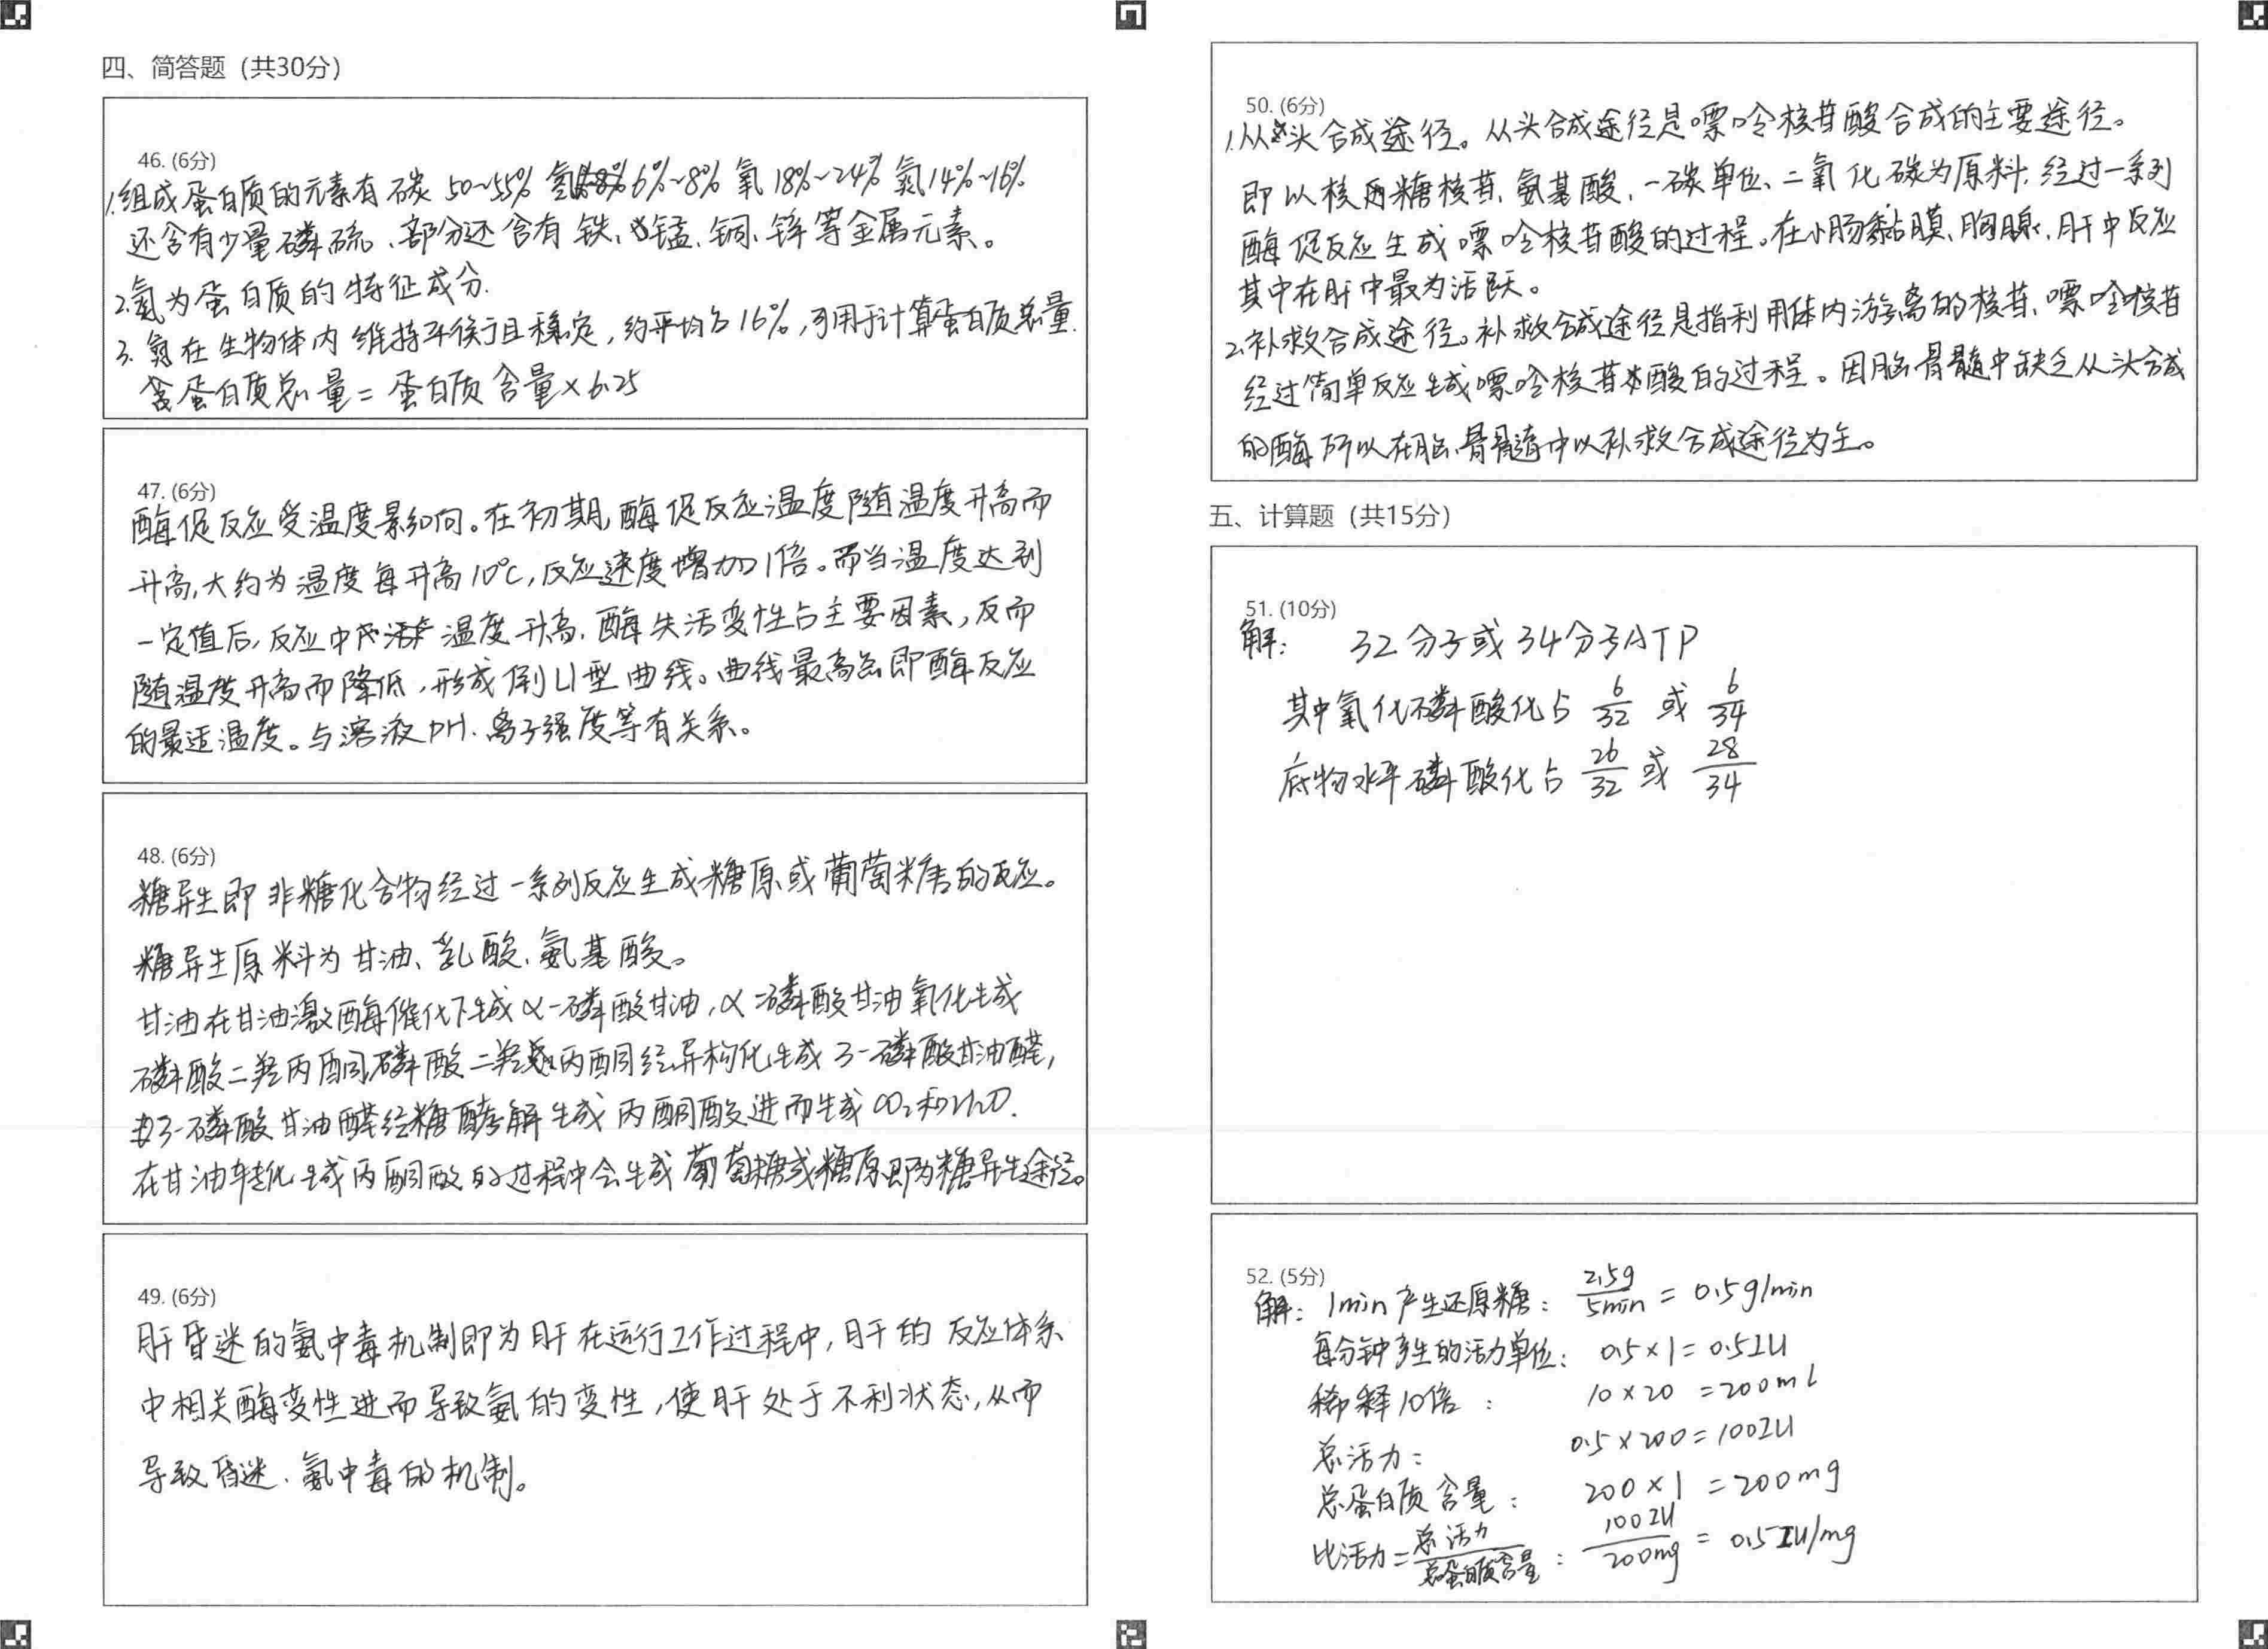 四、简答题（共30分）
46. (6分)
1.组成蛋白质的元素有碳 50~55% 氢6%~8% 氧18%~24% 氮14%~16%
还含有少量磷硫、部分还含有铁、锰、铜、锌等金属元素。
2.氮为蛋白质的特征成分.
3. 氮在生物体内维持平衡于且稳定，约平均为16%，可用于计算蛋白质总量.
蛋白质总量 = 蛋白质含量×6.25
47. (6分)
酶促反应受温度影响。在初期,酶促反应温度随温度升高而
升高,大约为温度每升高10℃,反应速度增加1倍。而当温度达到
一定值后,反应中 温度升高,酶失活变性占主要因素,反而
随温度升高而降低,形成倒U型曲线。曲线最高点即酶反应
的最适温度。与溶液pH、离子强度等有关系。
48. (6分)
糖异生即非糖化合物经过一系列反应生成糖原或葡萄糖的反应。
糖异生原料为甘油、乳酸、氨基酸。
甘油在甘油激酶催化下生成α-磷酸甘油,α-磷酸甘油氧化生成
磷酸二羟丙酮,磷酸二羟丙酮经异构化生成3-磷酸甘油醛,
3-磷酸甘油醛经糖酵解生成丙酮酸进而生成CO₂和H₂O.
在甘油转化生成丙酮酸的过程中会生成葡萄糖或糖原即为糖异生途径。
49. (6分)
肝昏迷的氨中毒机制即为肝在运行工作过程中,肝的反应体系
中相关酶变性进而导致氨的变性,使肝处于不利状态,从而
导致昏迷、氨中毒的机制。
50. (6分)
1.从头合成途径。从头合成途径是嘌呤核苷酸合成的主要途径。
即以核丙糖核苷、氨基酸、一碳单位、二氧化碳为原料,经过一系列
酶促反应生成嘌呤核苷酸的过程。在小肠黏膜、胸腺、肝中反应
其中在肝中最为活跃。
2.补救合成途径。补救合成途径是指利用体内游离的核苷、嘌呤核苷
经过简单反应生成嘌呤核苷酸的过程。因脑、骨髓中缺乏从头合成
的酶所以在脑、骨髓中以补救合成途径为主。
五、计算题（共15分）
51. (10分)
解: 32分子或34分子ATP
其中氧化磷酸化占 6/32 或 6/34
底物水平磷酸化占 26/32 或 28/34
52. (5分)
解: 1min产生还原糖: 2.5g/5min = 0.5g/min
每分钟产生的活力单位: 0.5×1=0.5IU
稀释10倍: 10×20 =200ml
总活力: 0.5×200=100IU
总蛋白质含量: 200×1 =200mg
比活力=总活力/总蛋白质含量: 100IU/200mg = 0.5IU/mg